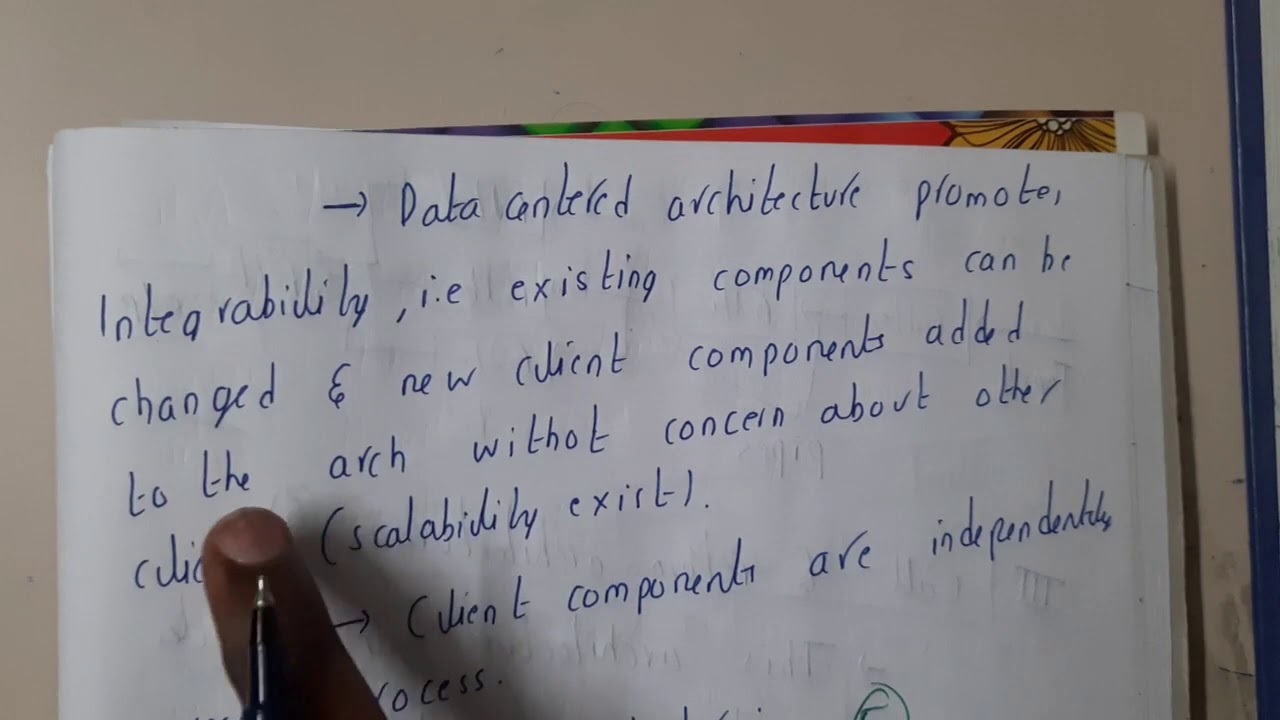 → Data centered architecture promotes
Integrability, i.e existing components can be
changed & new client components added
to the arch without concern about other
(scalability exist).
→ Client components are independently